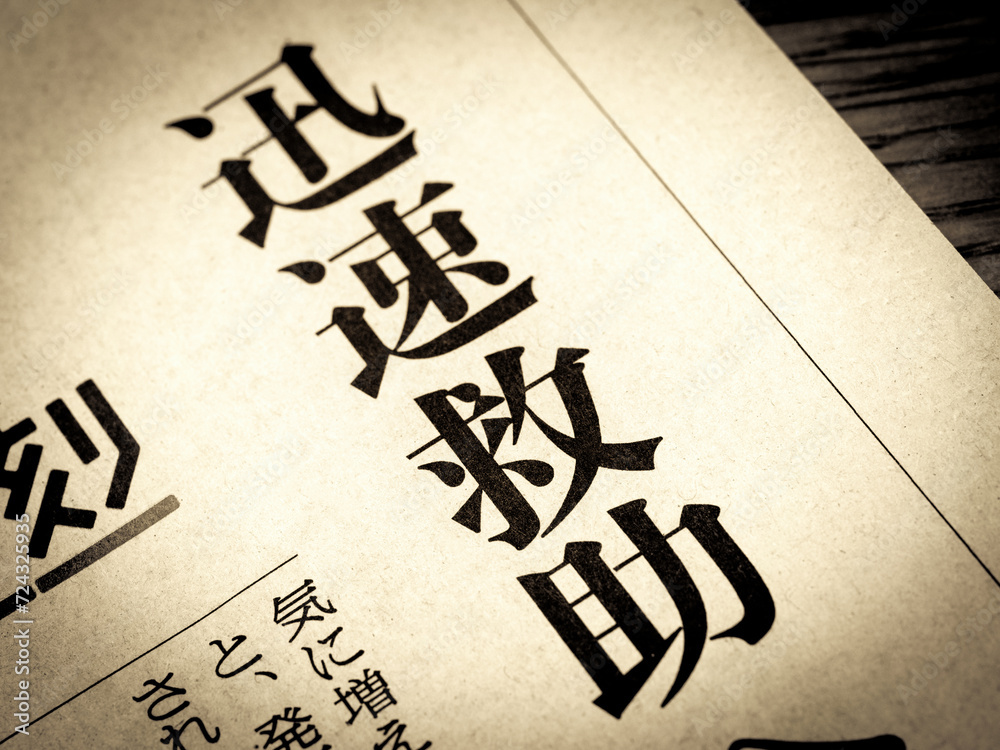 迅速救助
刻
気に増え
と、発
され
Adobe Stock | #724325935